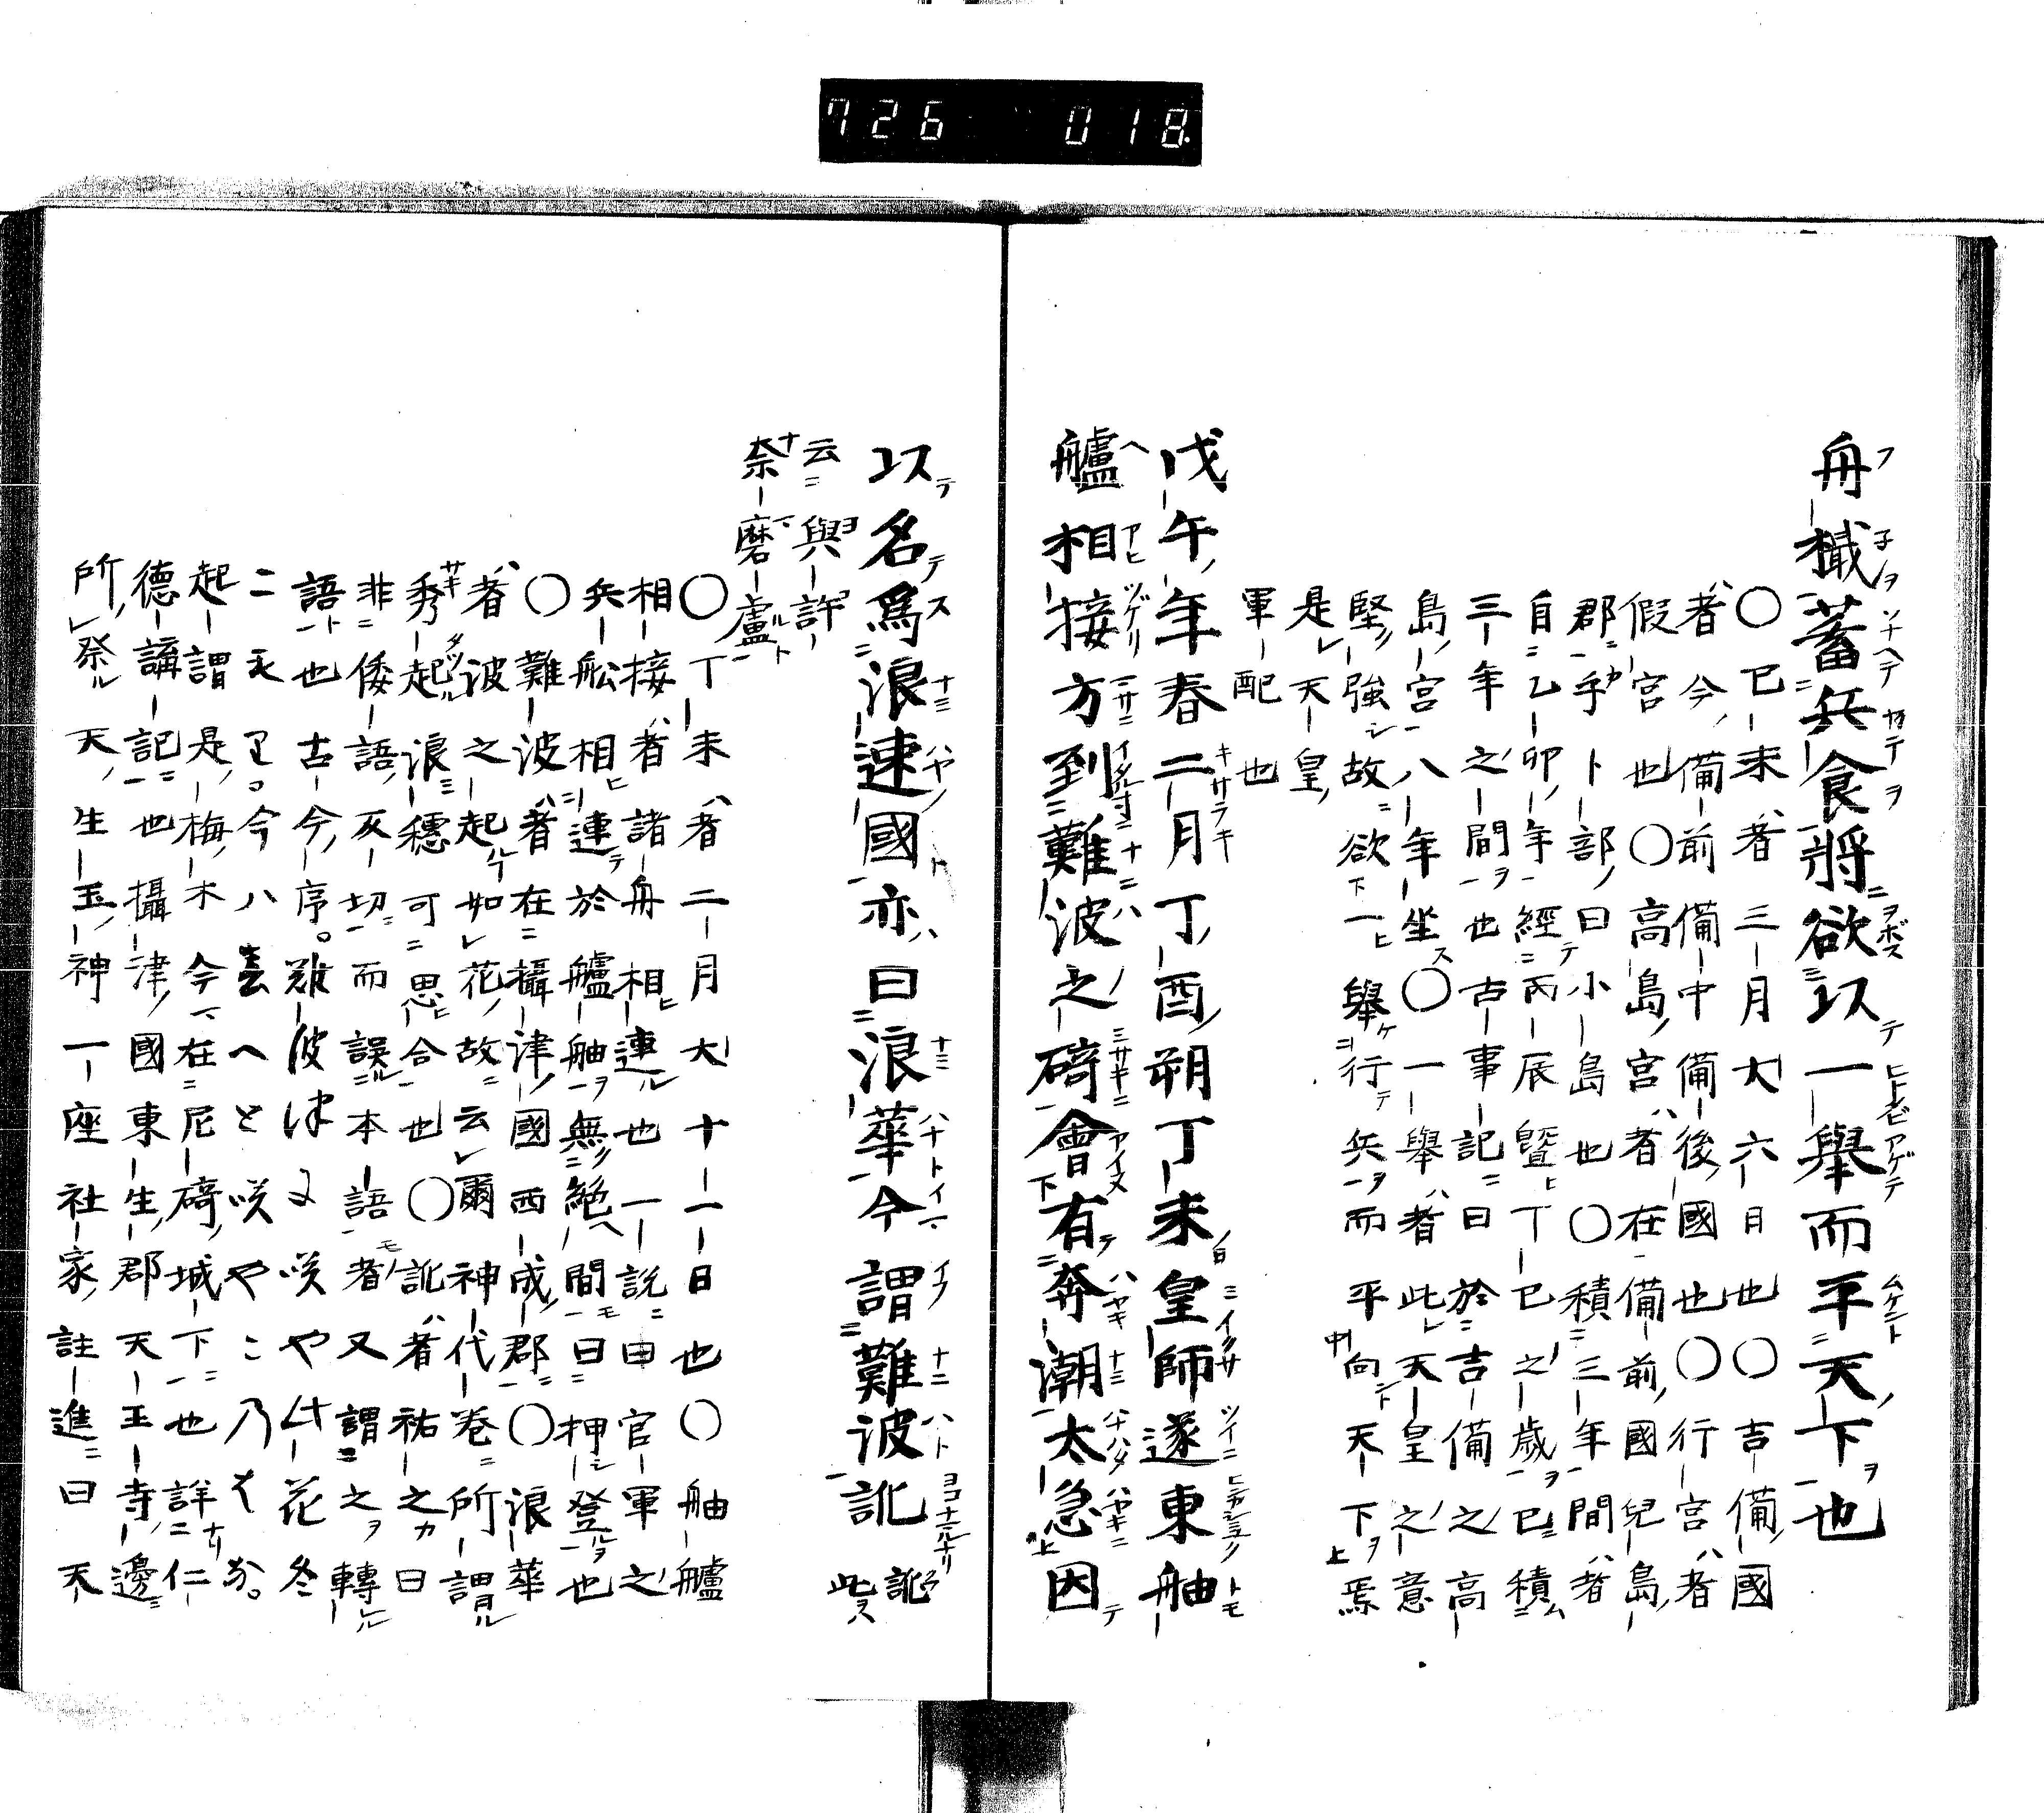 726 018
舟檝蓄兵食將欲以一舉而平天下也
〇已未者三月大六日也〇吉備國
者今備前備中備後國也〇行宮者
假宮也〇高島宮者在備前國兒島
郡乎卜部曰小島也〇積三年間者
自乙卯年經丙辰曁丁巳之歳已積
三年之間也古事記曰於吉備之高
島宮八年坐〇一舉者此天皇之意
堅強故欲一舉行兵而平向天下焉
是天皇
軍配也
戊午年春二月丁酉朔丁未皇師遂東舳
艫相接方到難波之碕會有奔潮太急因
以名爲浪速國亦曰浪華今謂難波訛 訛此
云與許
奈磨盧
〇丁未者二月大十一日也〇舳艫
相接者諸舟相連也一説曰官軍之
兵舩相連於艫舳無絶間曰押登也
〇難波者在攝津國西成郡〇浪華
者波之起如花故云爾神代卷所謂
秀起浪穗可思合也〇訛者祐之曰
非倭語反切而誤本語者又謂之轉
語也古今序。難波津に咲や此花冬
こもり。今ハ春へと咲やこ乃はな。
起謂是梅木今在尼碕城下也詳仁
德講記也攝津國東生郡天王寺邊
所祭天生玉神一座社家註進曰天